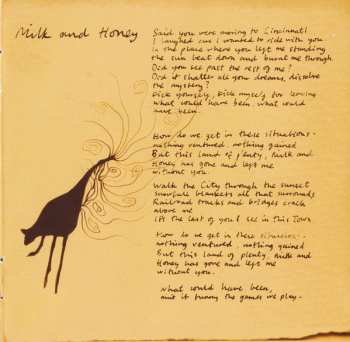 Milk and Honey
Said you were moving to Cincinnati
I laughed cus I wanted to ride with you
In the place where you left me standing
the sun beat down and burnt me through.
Did you see past the rest of me?
Did it shatter all your dreams, dissolve
the mystery?
Kick yourself, kick myself for leaving
what could have been, what could
have been.
How do we get in these situations -
nothing ventured, nothing gained
But this land of plenty, Milk and
Honey has gone and left me
without you.
Walk the City through the sunset
Snowfall blankets all that surrounds
Railroad tracks and bridges crack
above me
It's the last of you I see in this Town
How do we get in these situations -
nothing ventured, nothing gained
But this land of plenty, Milk and
Honey has gone and left me
without you.
What could have been,
ain't it funny the games we play -